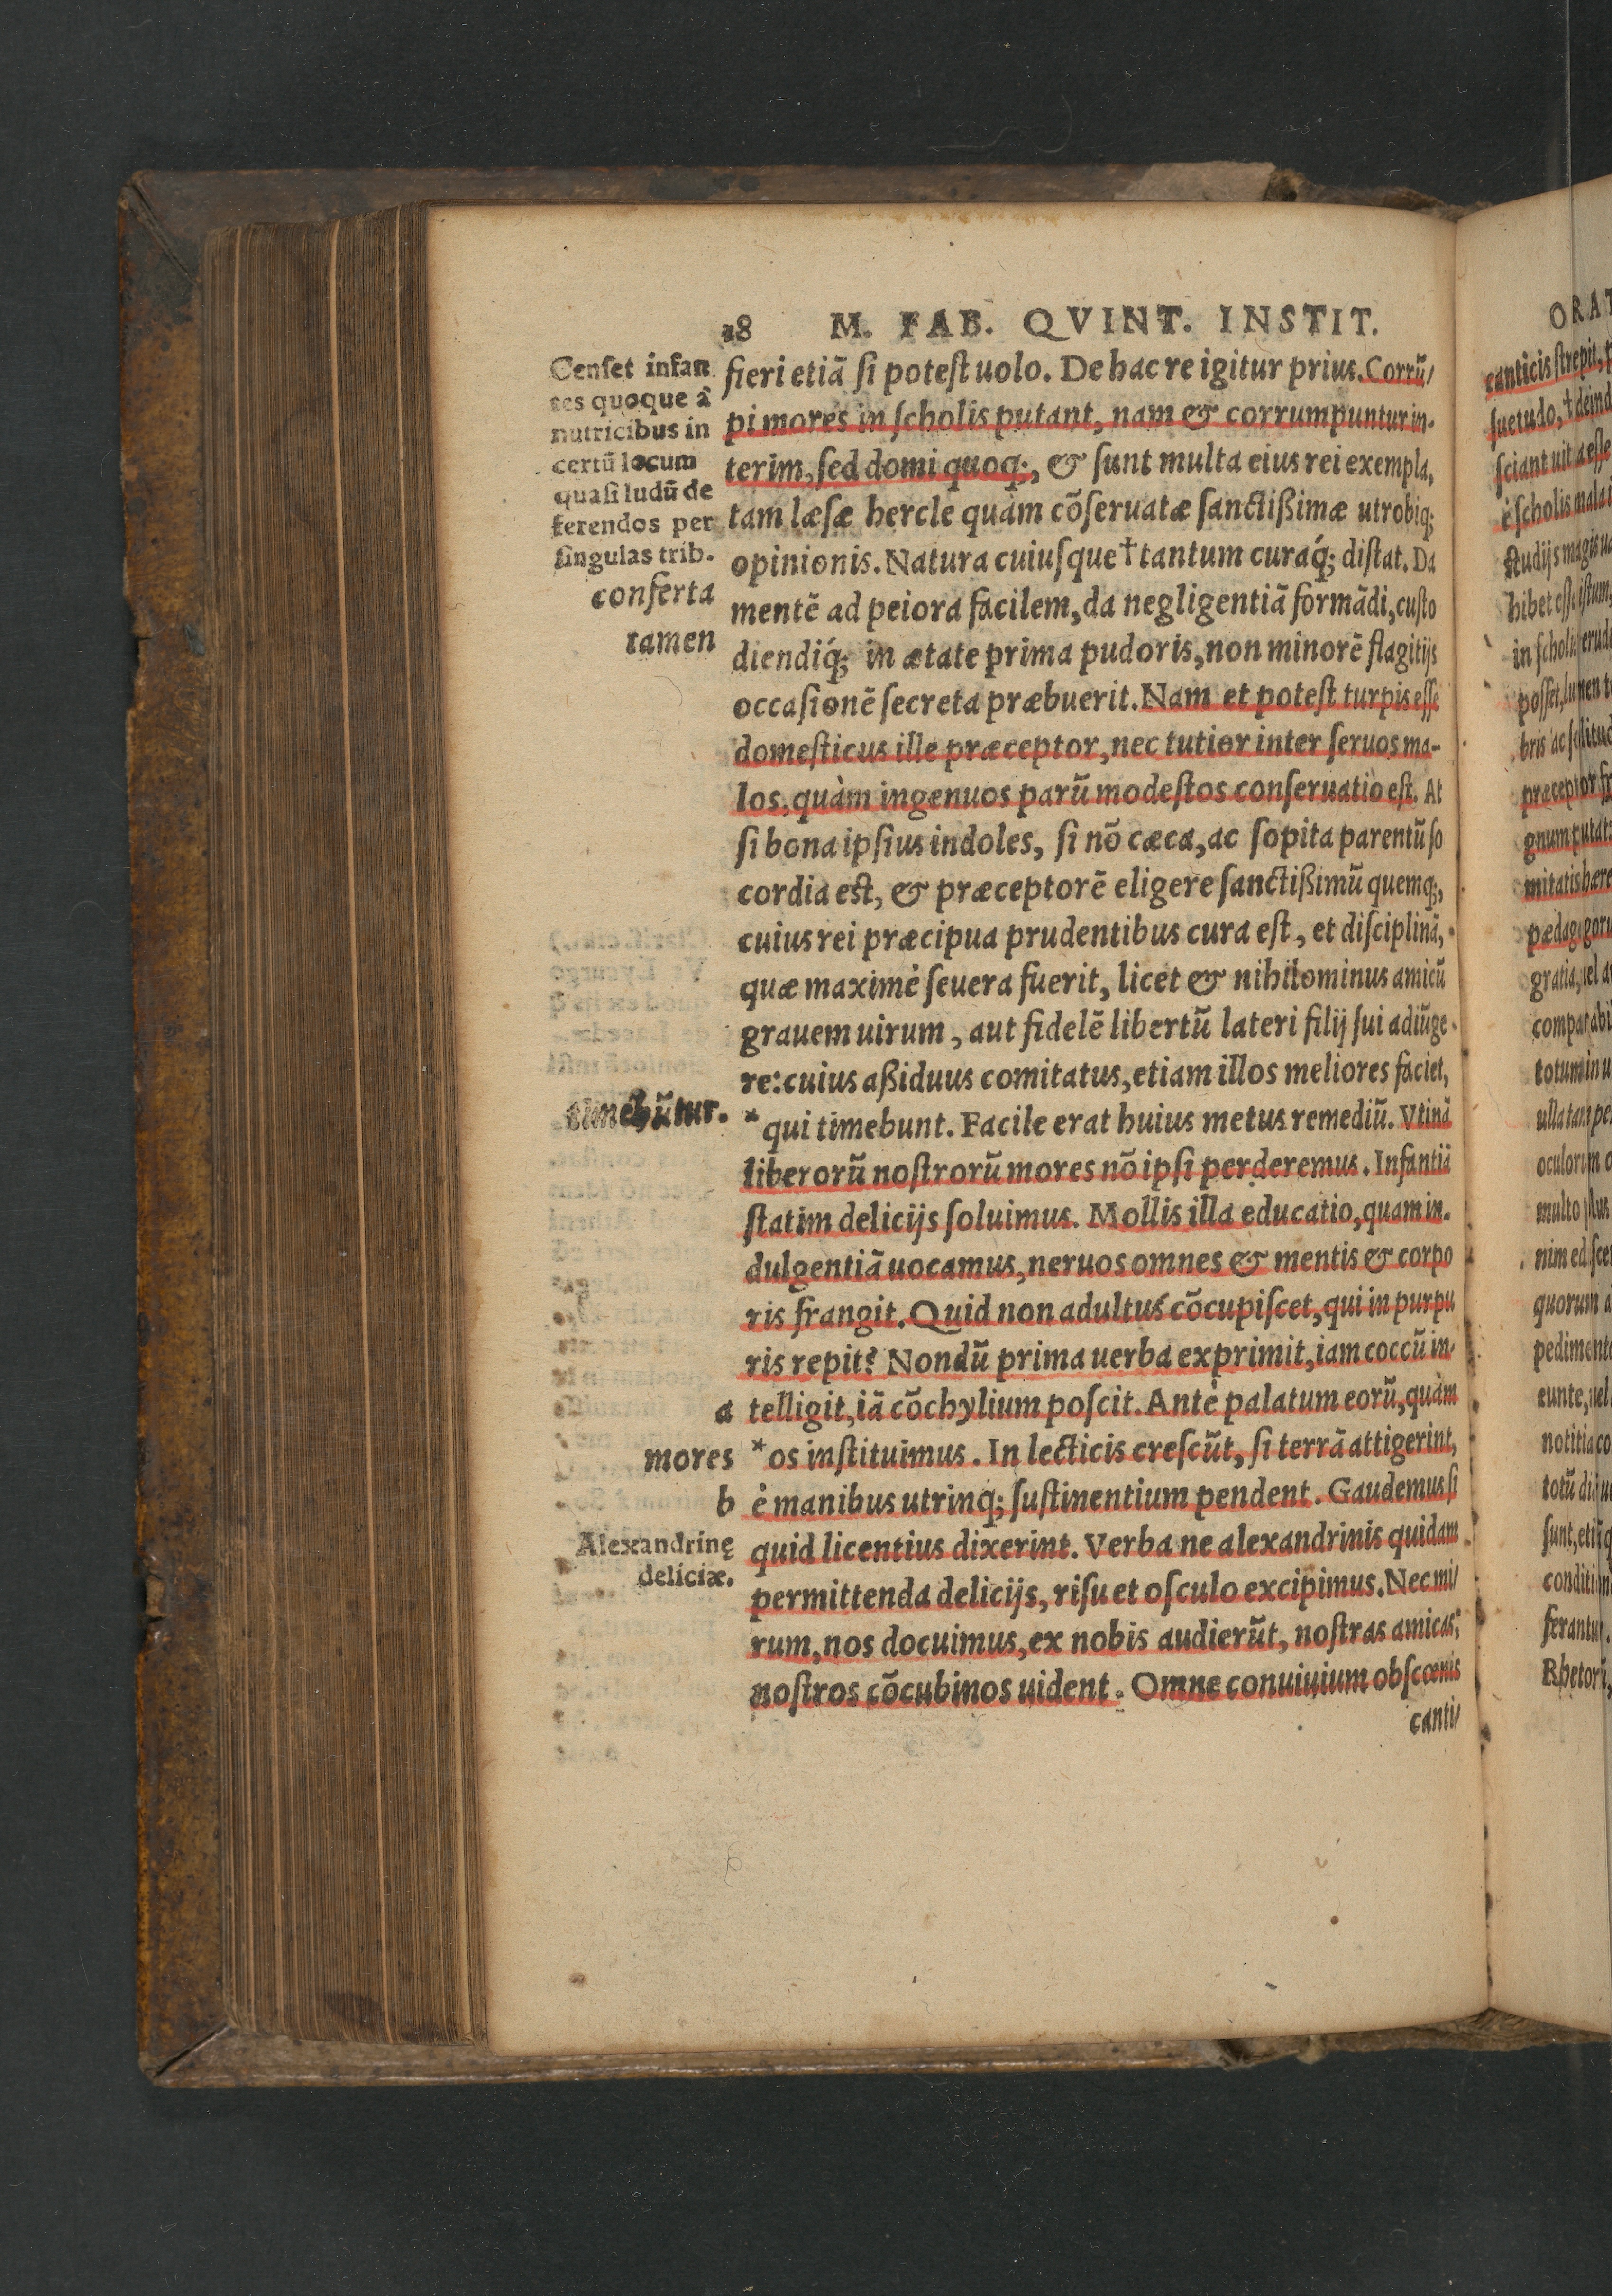 28 M. FAB. QVINT. INSTIT.
Censet infan
tes quoque â
nutricibus in
certũ locum
quasi ludũ de
ferendos per
singulas trib.
conferta
tamen
fieri etiã si potest uolo. De hac re igitur prius. Corrũ/
pi mores in scholis putant, nam & corrumpuntur in-
terim, sed domi quoq;, & sunt multa eius rei exempla,
tam læsæ hercle quàm cõseruatæ sanctißimæ utrobiq;
opinionis. Natura cuiusque † tantum curaq́; distat. Da
mentẽ ad peiora facilem, da negligentiã formãdi, custo
diendiq́; in ætate prima pudoris, non minorẽ flagitijs
occasionẽ secreta præbuerit. Nam et potest turpis esse
domesticus ille præceptor, nec tutior inter seruos ma-
los, quàm ingenuos parũ modestos conseruatio est. At
si bona ipsius indoles, si nõ cæca, ac sopita parentũ so
cordia est, & præceptorẽ eligere sanctißimũ quemq;,
cuius rei præcipua prudentibus cura est, et disciplinã,
quæ maximè seuera fuerit, licet & nihilominus amicũ
grauem uirum, aut fidelẽ libertũ lateri filij sui adiũge
re: cuius aßiduus comitatus, etiam illos meliores faciet,
timebũtur.
* qui timebunt. Facile erat huius metus remediũ. Vtinã
liberorũ nostrorũ mores nõ ipsi perderemus. Infantiã
statim delicijs soluimus. Mollis illa educatio, quam in-
dulgentiã uocamus, neruos omnes & mentis & corpo
ris frangit. Quid non adultus cõcupiscet, qui in purpu
ris repit? Nondũ prima uerba exprimit, iam coccũ in-
a telligit, iã cõchylium poscit. Antè palatum eorũ, quàm
mores * os instituimus. In lecticis crescũt, si terrã attigerint,
b è manibus utrinq; sustinentium pendent. Gaudemus si
Alexandrinę
deliciæ.
quid licentius dixerint. Verba ne alexandrinis quidam
permittenda delicijs, risu et osculo excipimus. Nec mi/
rum, nos docuimus, ex nobis audierũt, nostras amicas,
nostros cõcubinos uident. Omne conuiuium obscœnis
canti/
ORAT
canticis strepit, p
suetudo, † deind
sciant uitia esse
è scholis mala i
studijs magis ua
hibet esse istum,
in scholis erudi
posset, lumen t
bris ac solitud
præceptor fr
gnum putat
mitatis hære
pædagogoru
gratia, uel a
comparabil
totum in u
ulla tam pe
oculorum o
multo
nim ed sce
quorum a
pedimento
eunte, uel
notitia co
sunt, etiã q
conditi
ferantur.
Rhetorũ,